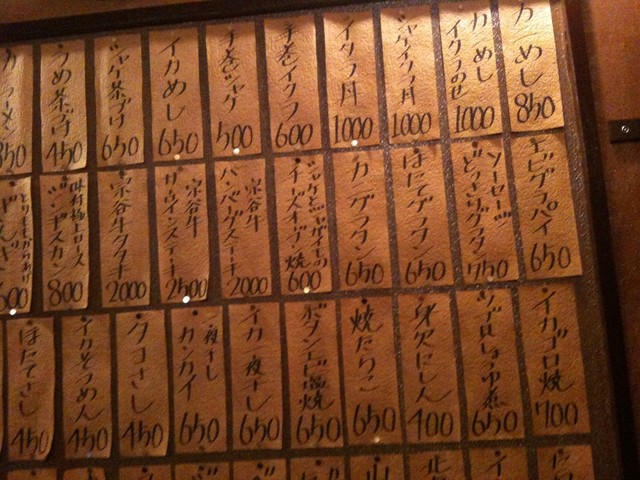 カニめし
850
カニめし
イクラのせ
1000
シャケイクラ丼
1000
イクラ丼
1000
手巻イクラ
600
手巻シャケ
500
イカめし
650
シャケ茶づけ
650
うめ茶づけ
450
エビグラパイ
650
ソーセージ
どっさりグラタン
750
ほたてグラタン
650
カニグラタン
650
シャケとジャガイモの
チーズオーブン焼
600
宗谷牛
ハンバーグステーキ
2000
宗谷牛
サーロインステーキ
2500
宗谷牛タタキ
2000
味付極上ロース
ジンギスカン
800
イカゴロ焼
700
650
身欠にしん
400
焼たらこ
650
ボタンエビ塩焼
650
イカ一夜干し
650
一夜干し
カンカイ
650
タコさし
450
イカそうめん
450
ほたてさし
450